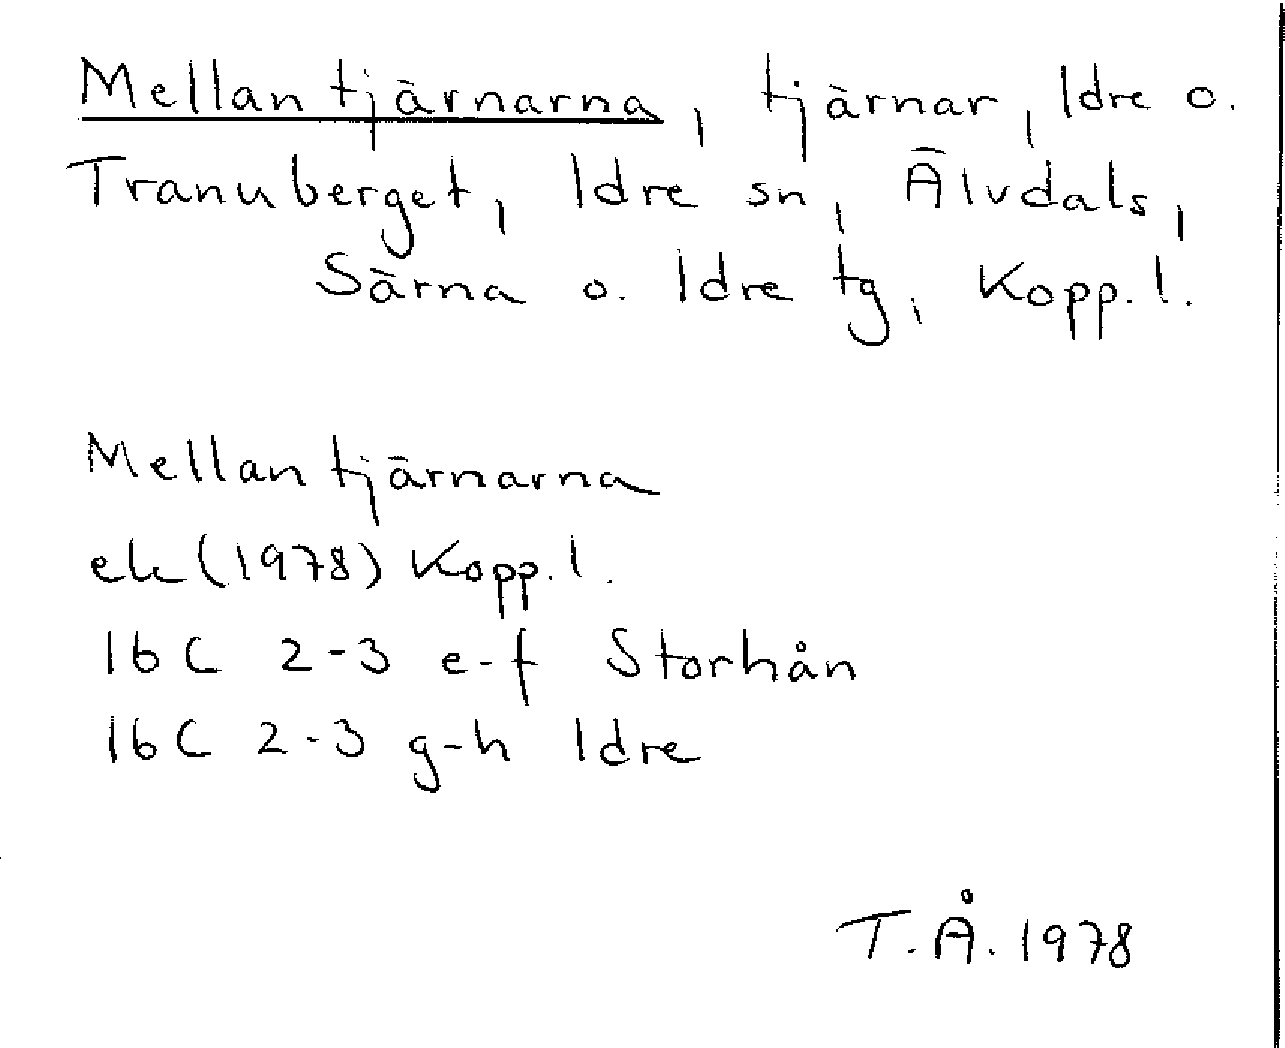 Mellantjärnarna, tjärnar, Idre o.
Tranuberget, Idre sn, Älvdals,
Särna o. Idre tg, Kopp. l.
Mellantjärnarna
ek (1978) Kopp. l.
16 C 2-3 e-f Storhån
16 C 2-3 g-h Idre
T.Å. 1978